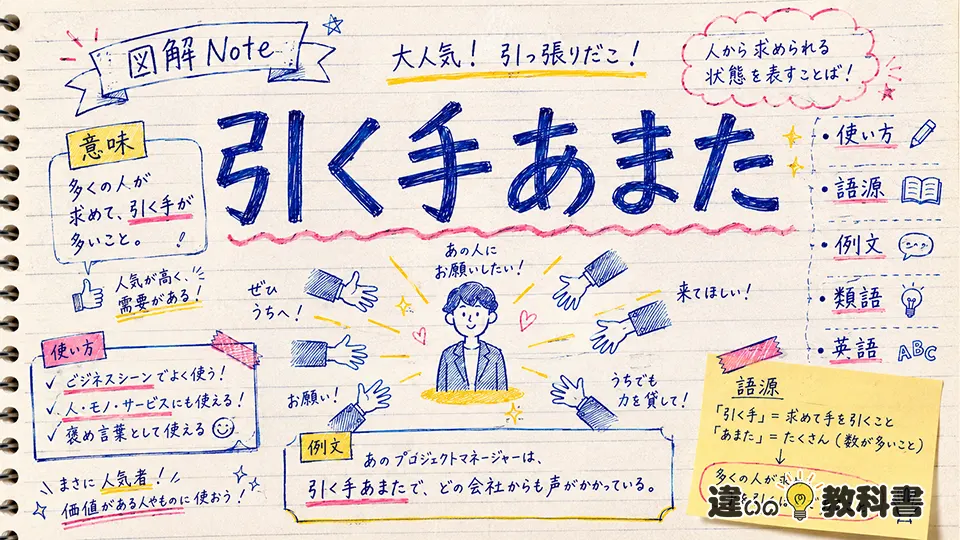 図解 Note
大人気！ 引っ張りだこ！
人から求められる
状態を表すことば！
引く手あまた
意味
多くの人が
求めて、引く手が
多いこと。
人気が高く、
需要がある！
・使い方
・語源
・例文
・類語
・英語 ABC
あの人に
お願いしたい！
ぜひ
うちへ！
来てほしい！
お願い！
うちでも
力を貸して！
使い方
✓ ビジネスシーンでよく使う！
✓ 人・モノ・サービスにも使える！
✓ 褒め言葉として使える
まさに人気者！
価値がある人やものに使おう！
例文
あのプロジェクトマネージャーは、
引く手あまたで、どの会社からも声がかかっている。
語源
「引く手」＝求めて手を引くこと
「あまた」＝たくさん（数が多いこと）
↓
多くの人が求
違いの教科書